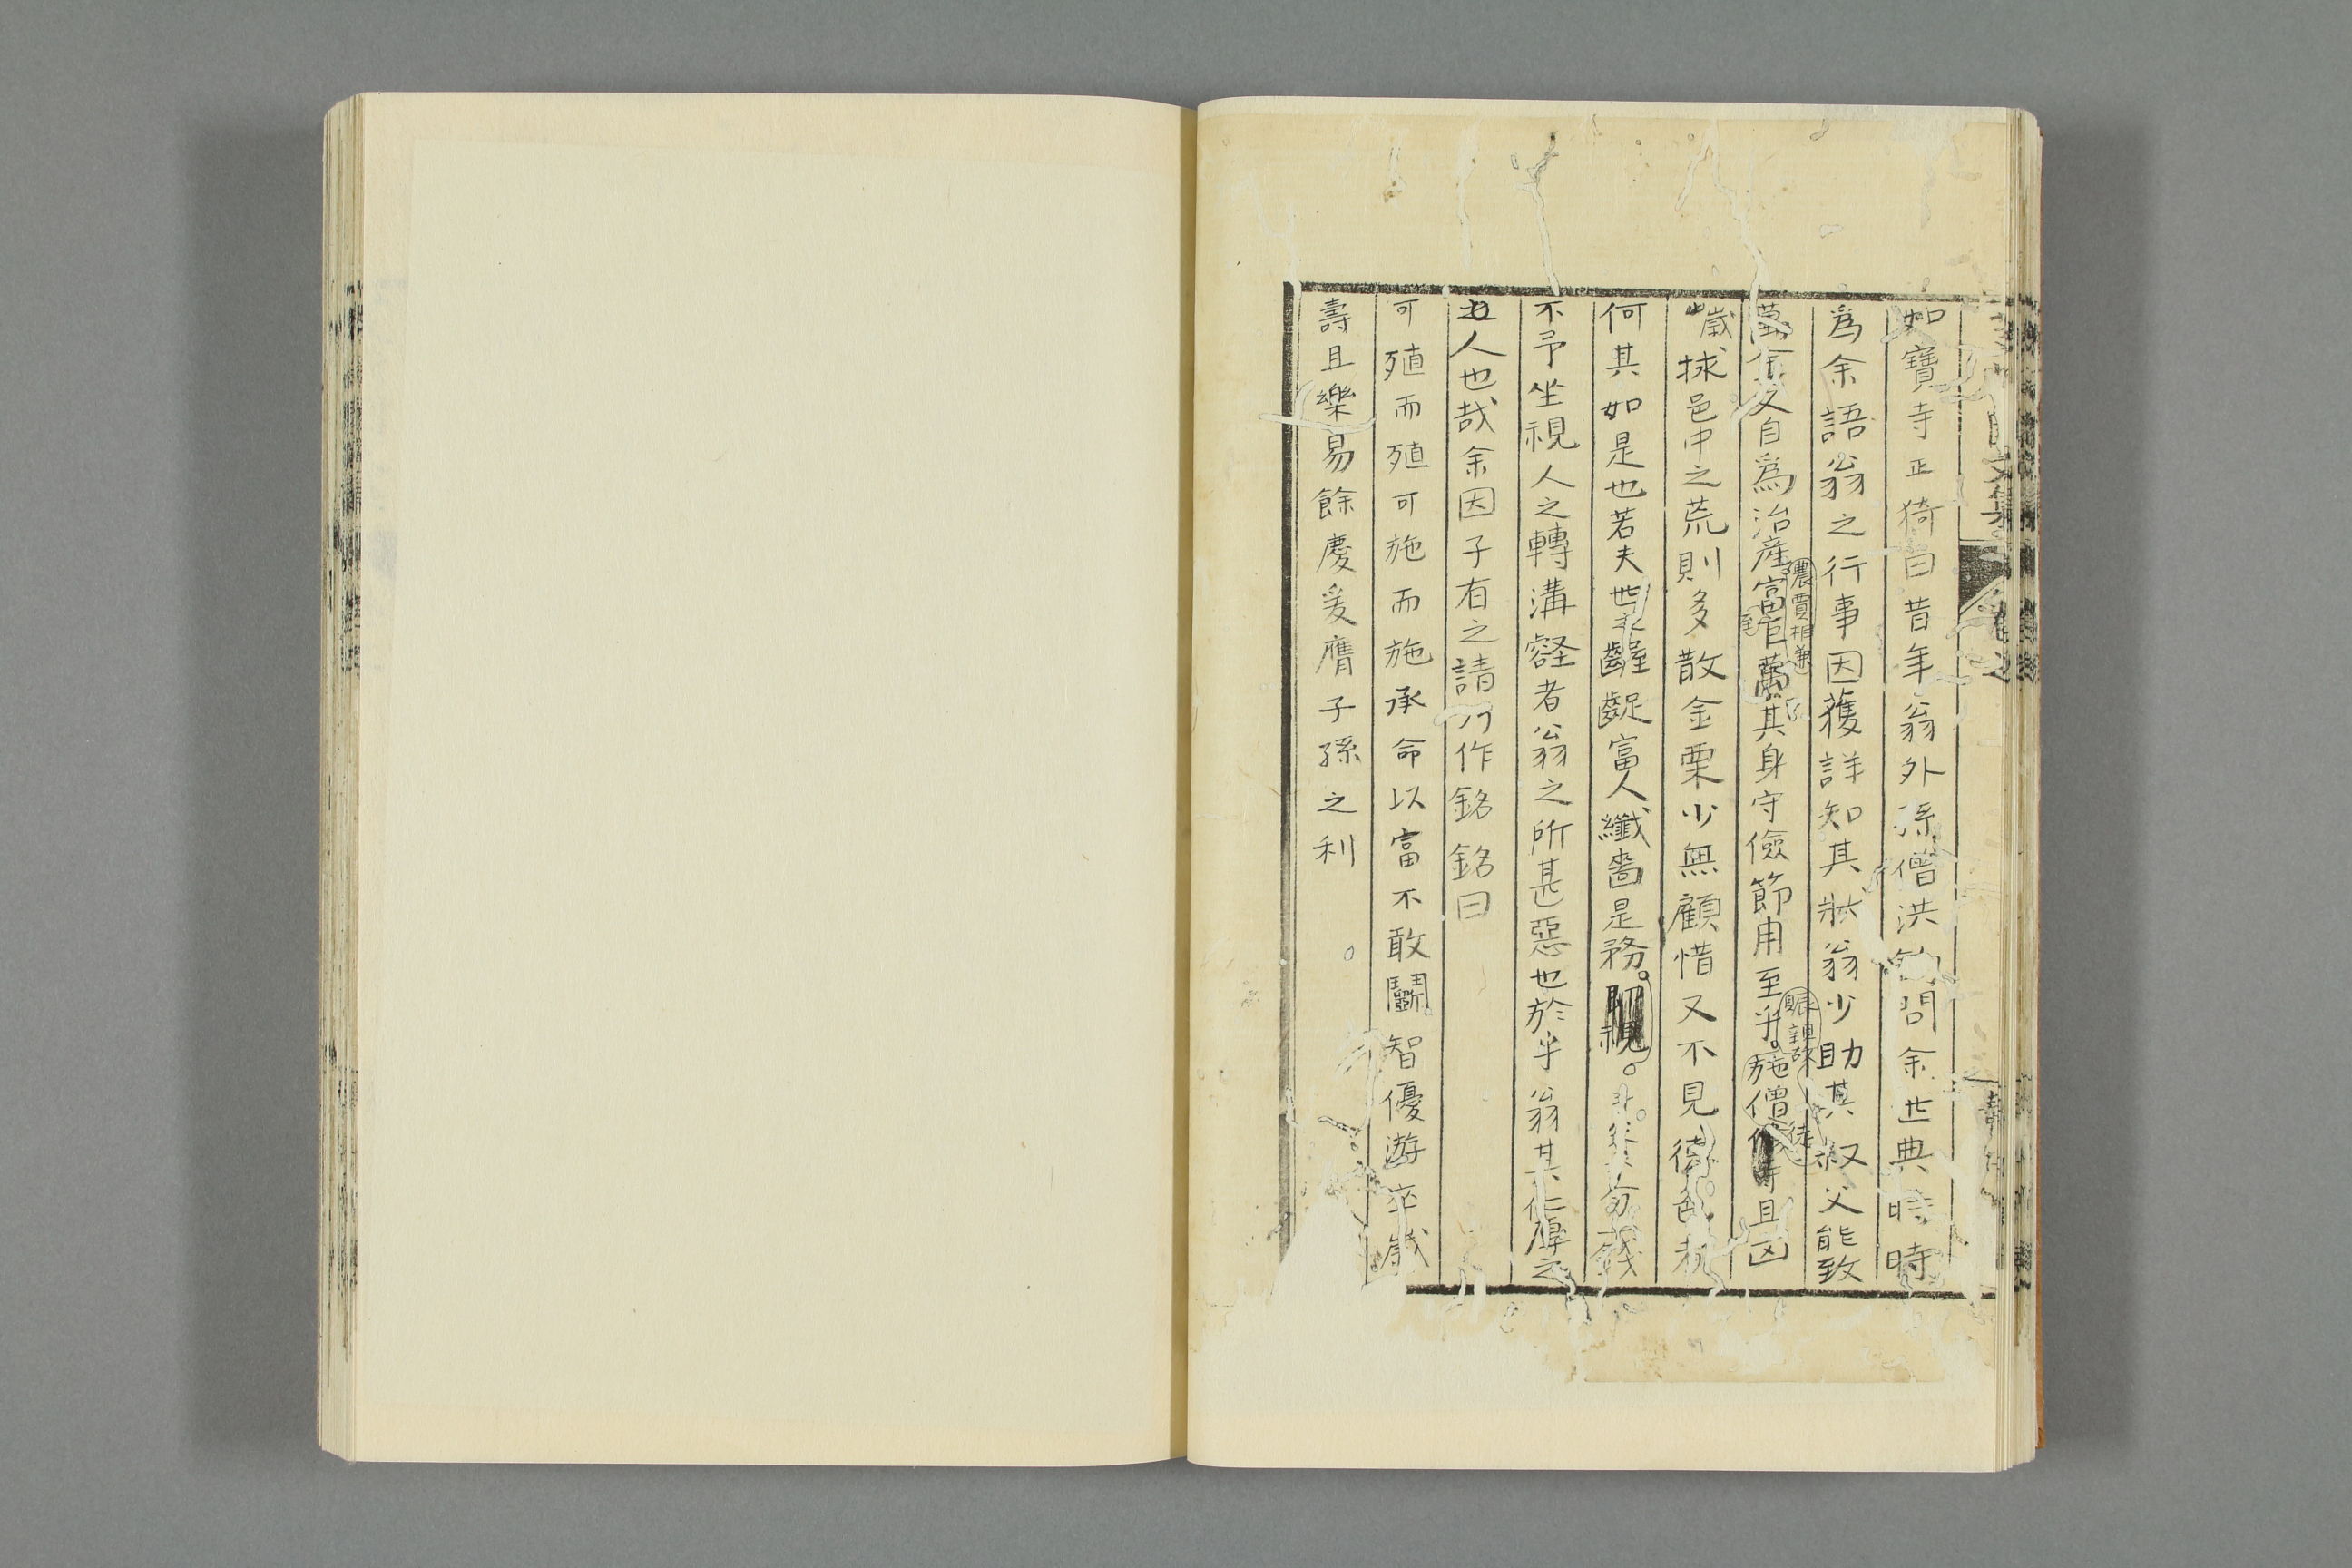 如寶寺正猗曰昔年翁外孫僧洪問余世典時時
爲余語翁之行事因獲詳知其狀翁少助其叔父能致
萬金又自爲治産富巨萬其身守儉節用至乎施僧且凶
農賈相兼
賑親
徒
歲捄邑中之荒則多散金栗少無顧惜又不見德色
何其如是也若夫世齷齪富人纖嗇是務
不予坐視人之轉溝壑者翁之所甚惡也於乎翁其
人也哉余因子有之請作銘銘曰
可殖而殖可施而施承命以富不敢鬭智優游卒歲
壽且樂易餘慶爰膺子孫之利